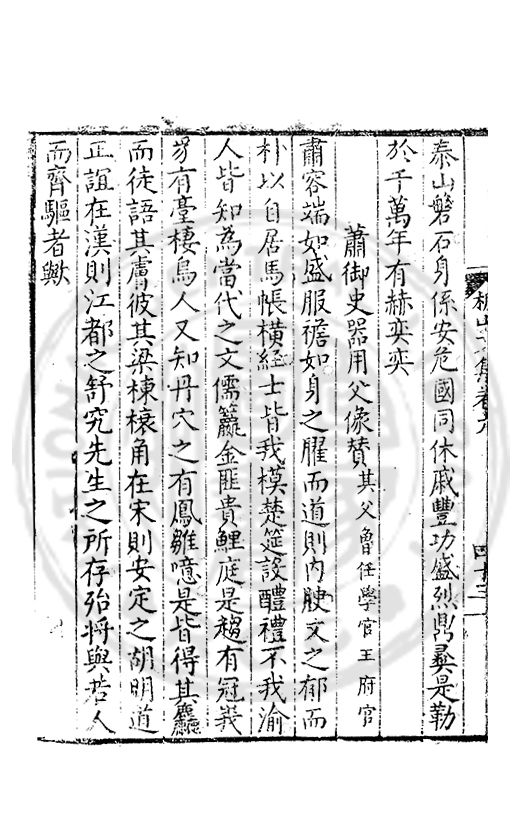 泰山磐石身係安危國同休戚豐功盛烈鼎彞是勒
於千萬年有赫奕奕
蕭御史器用父像贊其父魯任學官王府官
肅容端如盛服襜如身之臞而道則内腴文之郁而
朴以自居馬帳橫経士皆我模楚筵設醴禮不我渝
人皆知為當代之文儒籯金匪貴鯉庭是趨有冠峩
豸有臺棲烏人又知丹穴之有鳳雛噫是皆得其麤
而徒語其膚彼其梁棟榱角在宋則安定之胡明道
正誼在漢則江都之舒究先生之所存殆將與若人
而齊驅者歟
文集卷
四十三